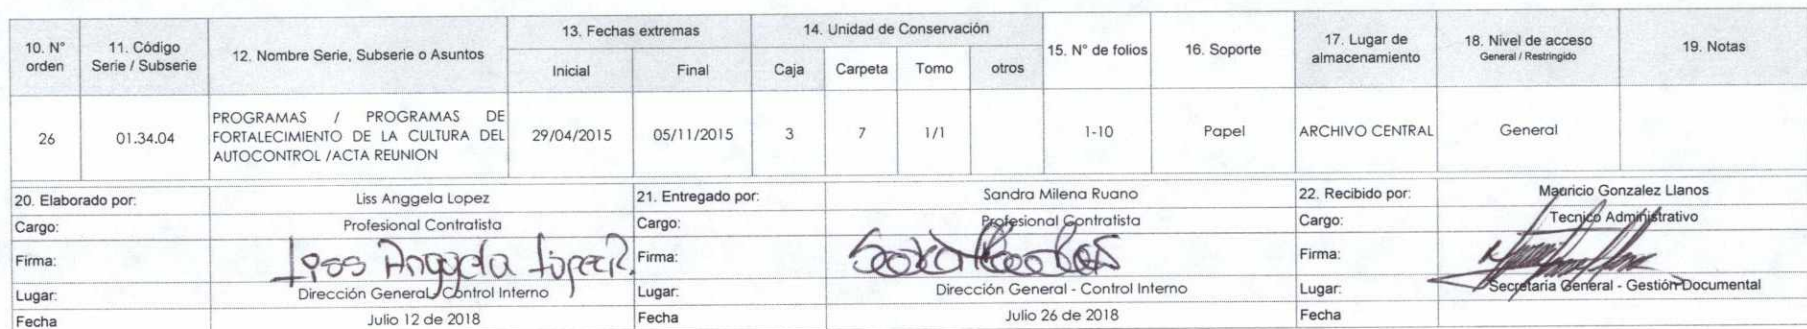 10. N° orden
11. Código Serie / Subserie
12. Nombre Serie, Subserie o Asuntos
13. Fechas extremas
Inicial
Final
14. Unidad de Conservación
Caja
Carpeta
Tomo
otros
15. N° de folios
16. Soporte
17. Lugar de almacenamiento
18. Nivel de acceso
General / Restringido
19. Notas
26
01.34.04
PROGRAMAS / PROGRAMAS DE
FORTALECIMIENTO DE LA CULTURA DEL
AUTOCONTROL /ACTA REUNION
29/04/2015
05/11/2015
3
7
1/1
1-10
Papel
ARCHIVO CENTRAL
General
20. Elaborado por: Liss Anggela Lopez
21. Entregado por: Sandra Milena Ruano
22. Recibido por: Mauricio Gonzalez Llanos
Cargo: Profesional Contratista
Cargo: Profesional Contratista
Cargo: Tecnico Administrativo
Firma: Liss Anggela López R.
Firma:
Firma:
Lugar: Dirección General - Control Interno
Lugar: Dirección General - Control Interno
Lugar: Secretaria General - Gestión Documental
Fecha Julio 12 de 2018
Fecha Julio 26 de 2018
Fecha